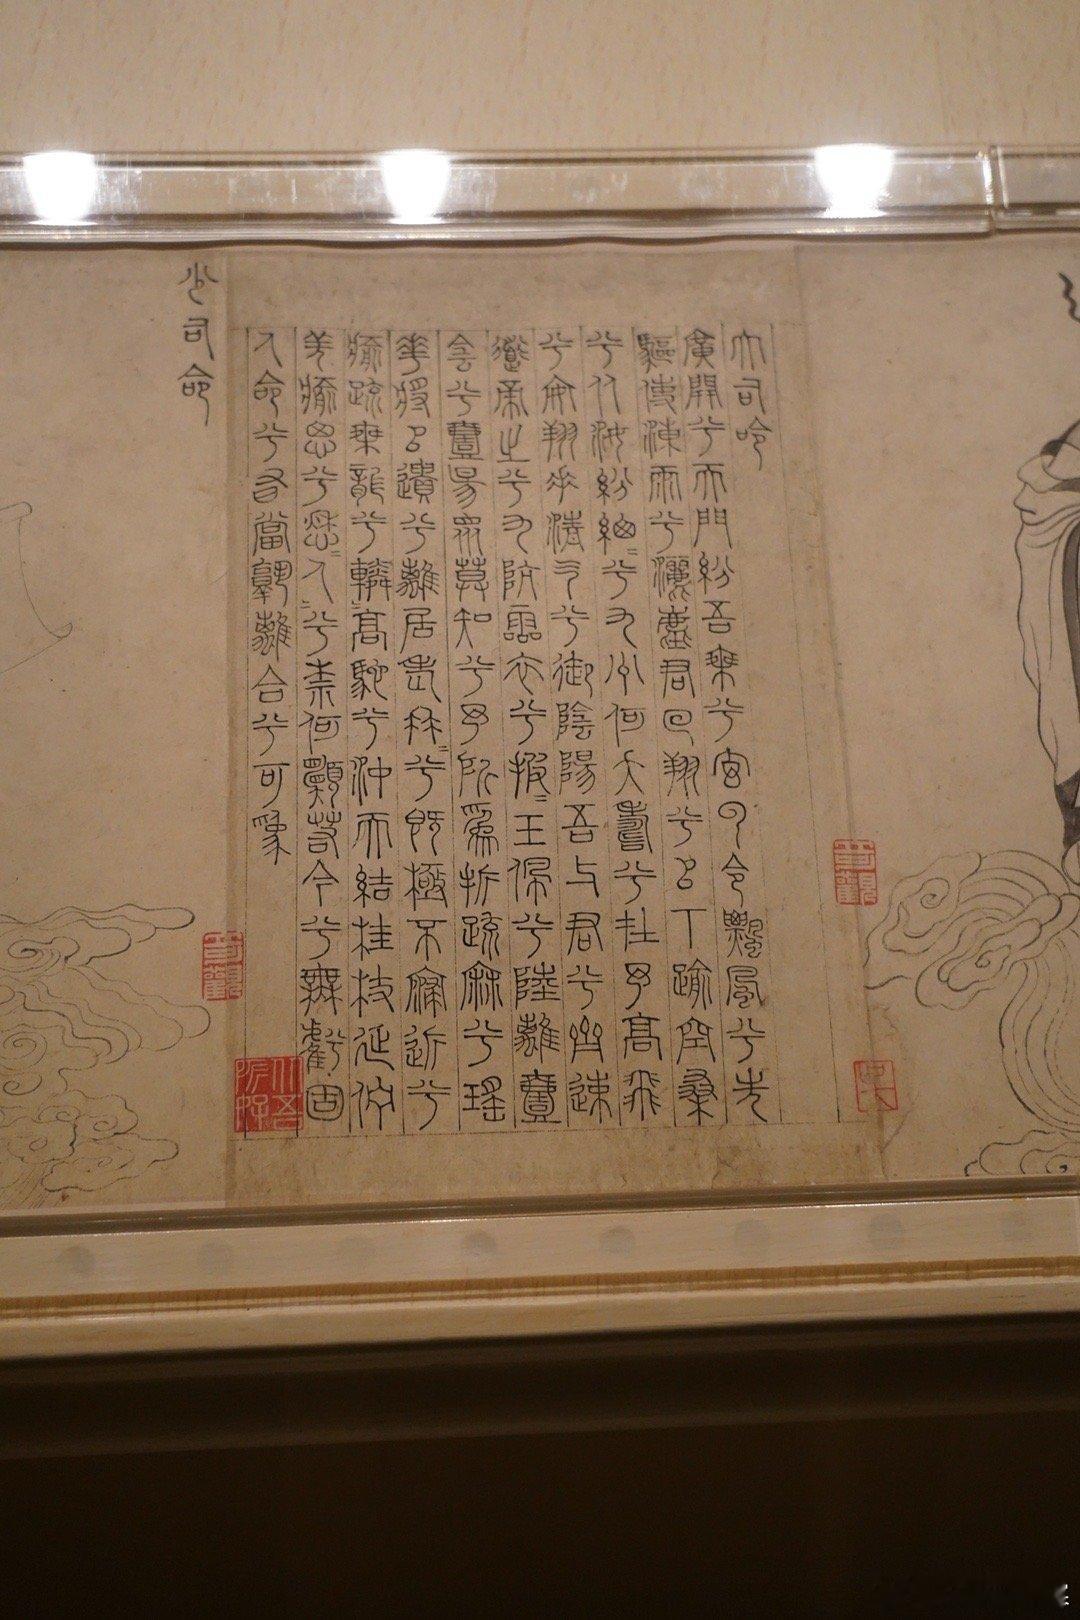 大司命
廣開兮天門紛吾乘兮玄雲令飄風兮先
驅使涷雨兮灑塵君回翔兮以下踰空桑
兮从汝紛總=兮九州何夭壽兮在予高飛
兮安翔乘清气兮御陰陽吾与君兮齊速
導帝之兮九阬靈衣兮披=玉佩兮陸離壹
陰兮壹陽眾莫知兮予所為折疏麻兮瑤
華將以遺兮離居老冉=兮既極不寖近兮
愈疏乘龍兮轔=高馳兮沖天結桂枝延佇
羌愈思兮愁=人兮柰何願若今兮無虧固
人命兮有當孰離合兮可為
少司命